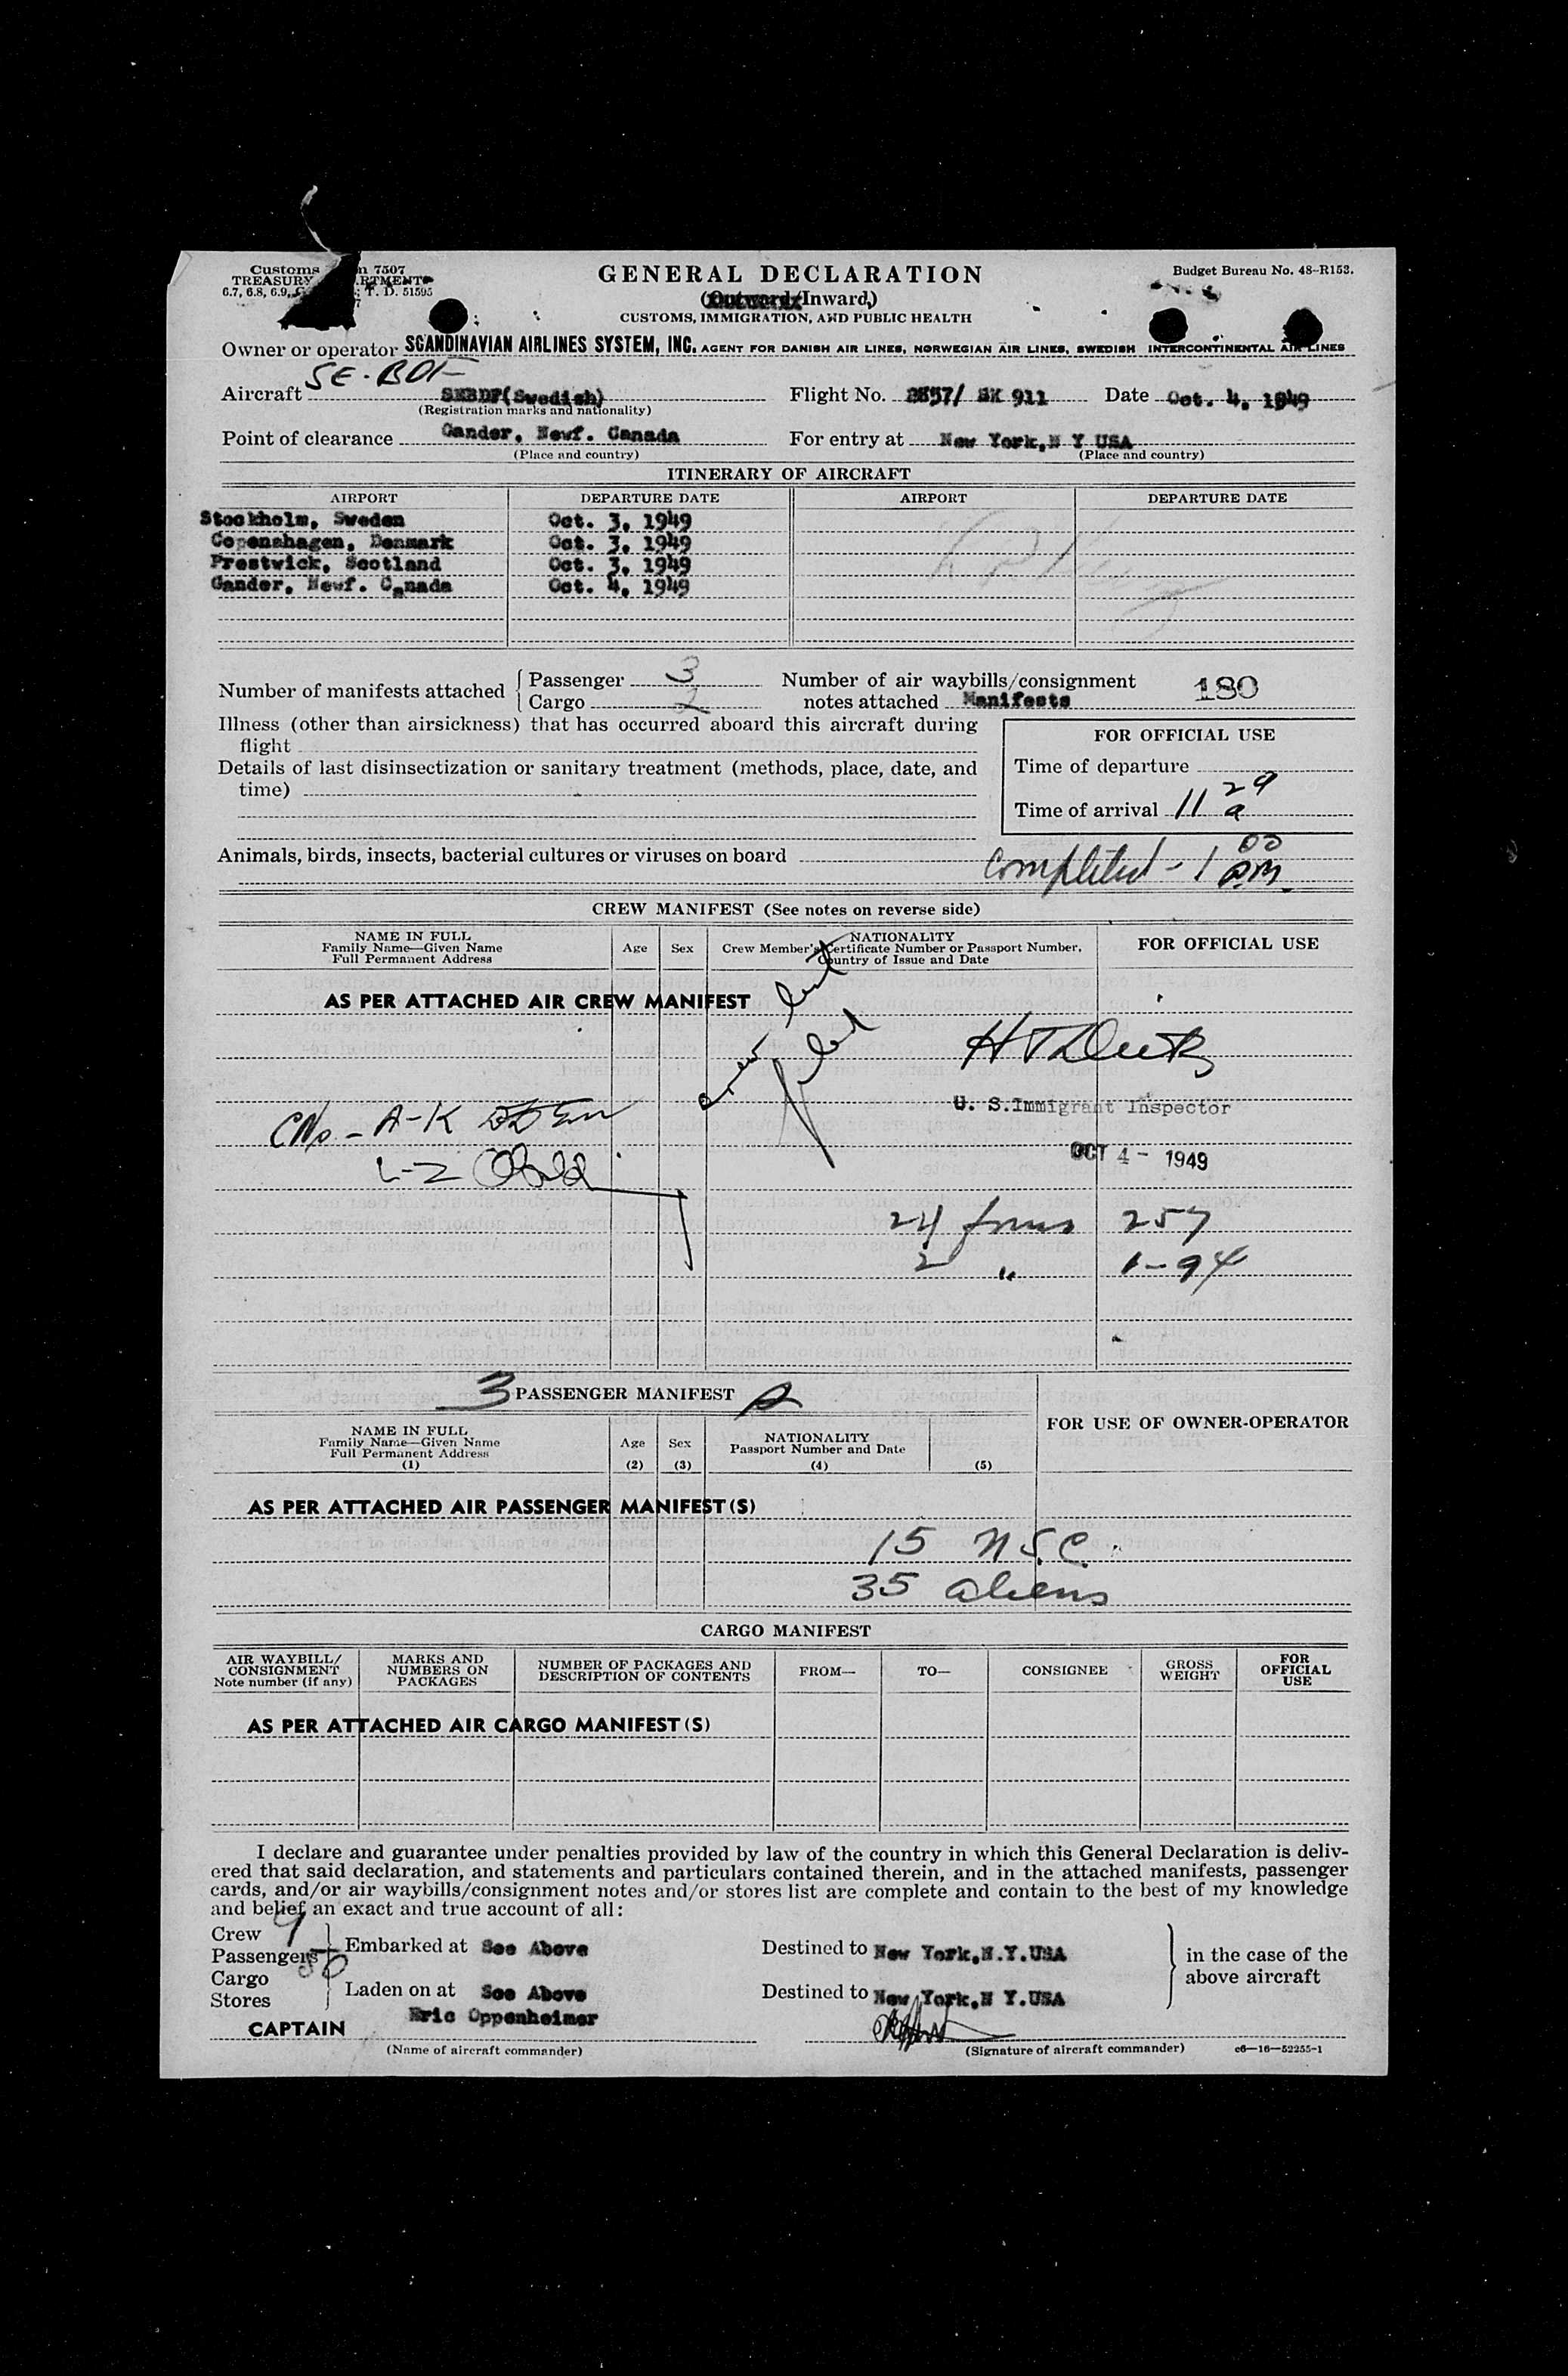 Customs n 7507
TREASURY RTMENT
6.7, 6.8, 6.9, ; T. D. 51595
GENERAL DECLARATION
(Outward/Inward)
CUSTOMS, IMMIGRATION, AND PUBLIC HEALTH
Budget Bureau No. 48-R153.
Owner or operator SCANDINAVIAN AIRLINES SYSTEM, INC. AGENT FOR DANISH AIR LINES, NORWEGIAN AIR LINES, SWEDISH INTERCONTINENTAL AIR LINES
SE-BDF
Aircraft SEBDF(Swedish) Flight No. 2557/ SK 911 Date Oct. 4, 1949
(Registration marks and nationality)
Point of clearance Gander, Newf. Canada For entry at New York,N Y USA
(Place and country) (Place and country)
ITINERARY OF AIRCRAFT
AIRPORT DEPARTURE DATE AIRPORT DEPARTURE DATE
Stockholm, Sweden Oct. 3, 1949
Copenahagen, Denmark Oct. 3, 1949
Prestwick, Scotland Oct. 3, 1949
Gander, Newf. Canada Oct. 4, 1949
Number of manifests attached { Passenger 3 Number of air waybills/consignment
Cargo 2 notes attached Manifests 180
Illness (other than airsickness) that has occurred aboard this aircraft during
flight
FOR OFFICIAL USE
Details of last disinsectization or sanitary treatment (methods, place, date, and
time)
Time of departure
Time of arrival 11 29 a
Animals, birds, insects, bacterial cultures or viruses on board
Completed - 1 00 P.M.
CREW MANIFEST (See notes on reverse side)
NAME IN FULL
Family Name—Given Name
Full Permanent Address
Age Sex
NATIONALITY
Crew Member's Certificate Number or Passport Number,
Country of Issue and Date
FOR OFFICIAL USE
AS PER ATTACHED AIR CREW MANIFEST
crew list
filed
U. S. Immigrant Inspector
CNs - A-K
L-Z
OCT 4 - 1949
24 forms 257
2 " 1-94
3 PASSENGER MANIFEST
FOR USE OF OWNER-OPERATOR
NAME IN FULL
Family Name—Given Name
Full Permanent Address
(1)
Age
(2)
Sex
(3)
NATIONALITY
Passport Number and Date
(4) (5)
AS PER ATTACHED AIR PASSENGER MANIFEST(S)
15 U.S.C.
35 aliens
CARGO MANIFEST
AIR WAYBILL/
CONSIGNMENT
Note number (if any)
MARKS AND
NUMBERS ON
PACKAGES
NUMBER OF PACKAGES AND
DESCRIPTION OF CONTENTS
FROM— TO— CONSIGNEE
GROSS
WEIGHT
FOR
OFFICIAL
USE
AS PER ATTACHED AIR CARGO MANIFEST(S)
I declare and guarantee under penalties provided by law of the country in which this General Declaration is deliv-
ered that said declaration, and statements and particulars contained therein, and in the attached manifests, passenger
cards, and/or air waybills/consignment notes and/or stores list are complete and contain to the best of my knowledge
and belief an exact and true account of all:
Crew 9
Passengers 50
Embarked at See Above Destined to New York,N.Y.USA
in the case of the
above aircraft
Cargo
Stores
Laden on at See Above Destined to New York,N Y.USA
CAPTAIN Eric Oppenheimer
(Name of aircraft commander) (Signature of aircraft commander) c6—16—52255-1